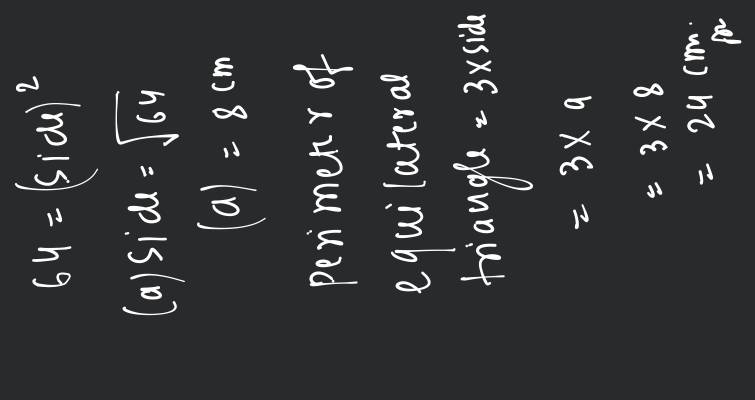 64 = (Side)²
(a) Side = √64
(a) = 8 cm
perimeter of
equilateral
triangle = 3 x side
= 3 x a
= 3 x 8
= 24 cm.